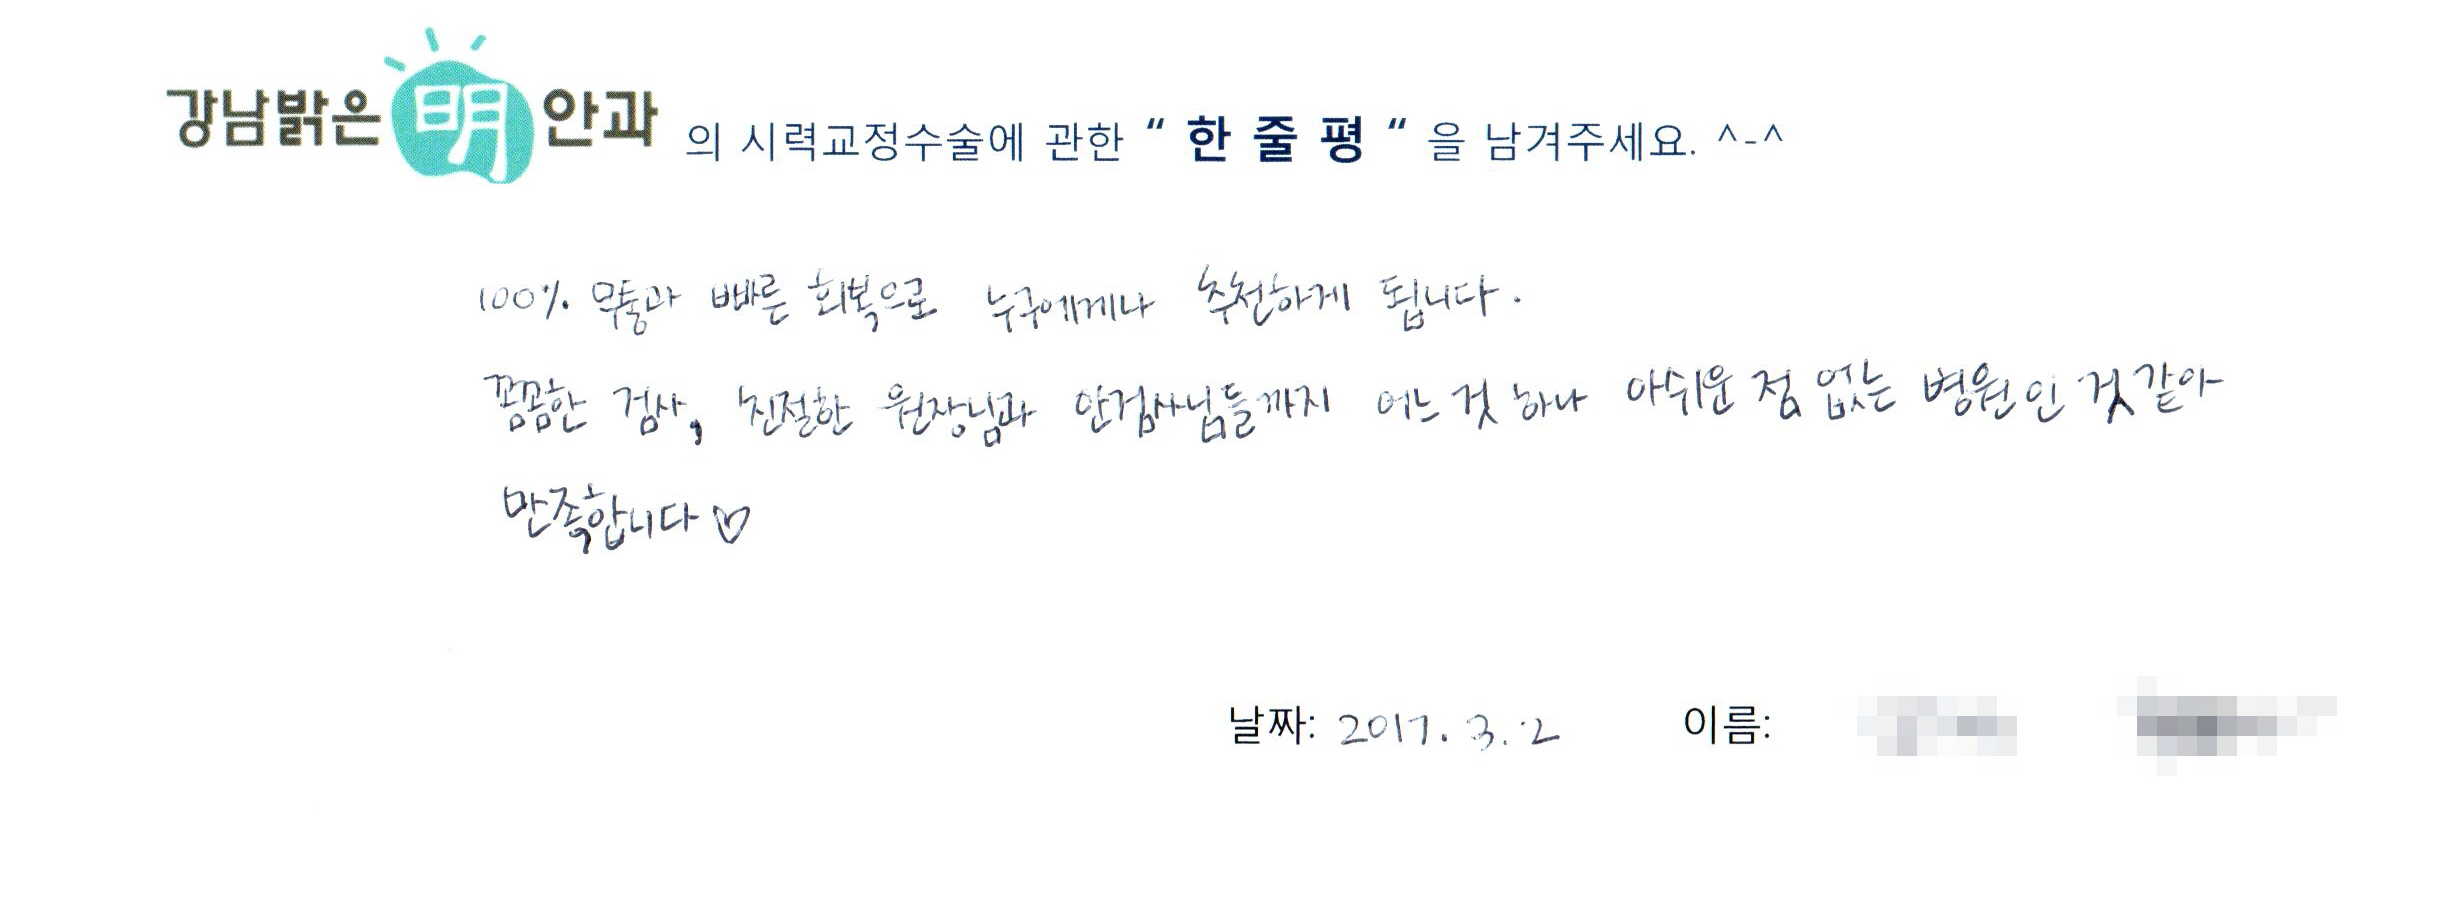 강남밝은 明 안과 의 시력교정수술에 관한 “ 한 줄 평 “ 을 남겨주세요. ^-^
100% 무통과 빠른 회복으로 누구에게나 추천하게 됩니다.
꼼꼼한 검사, 친절한 원장님과 안검사님들까지 어느 것 하나 아쉬운 점 없는 병원인 것 같아
만족합니다♡
날짜: 2017. 3. 2 이름: